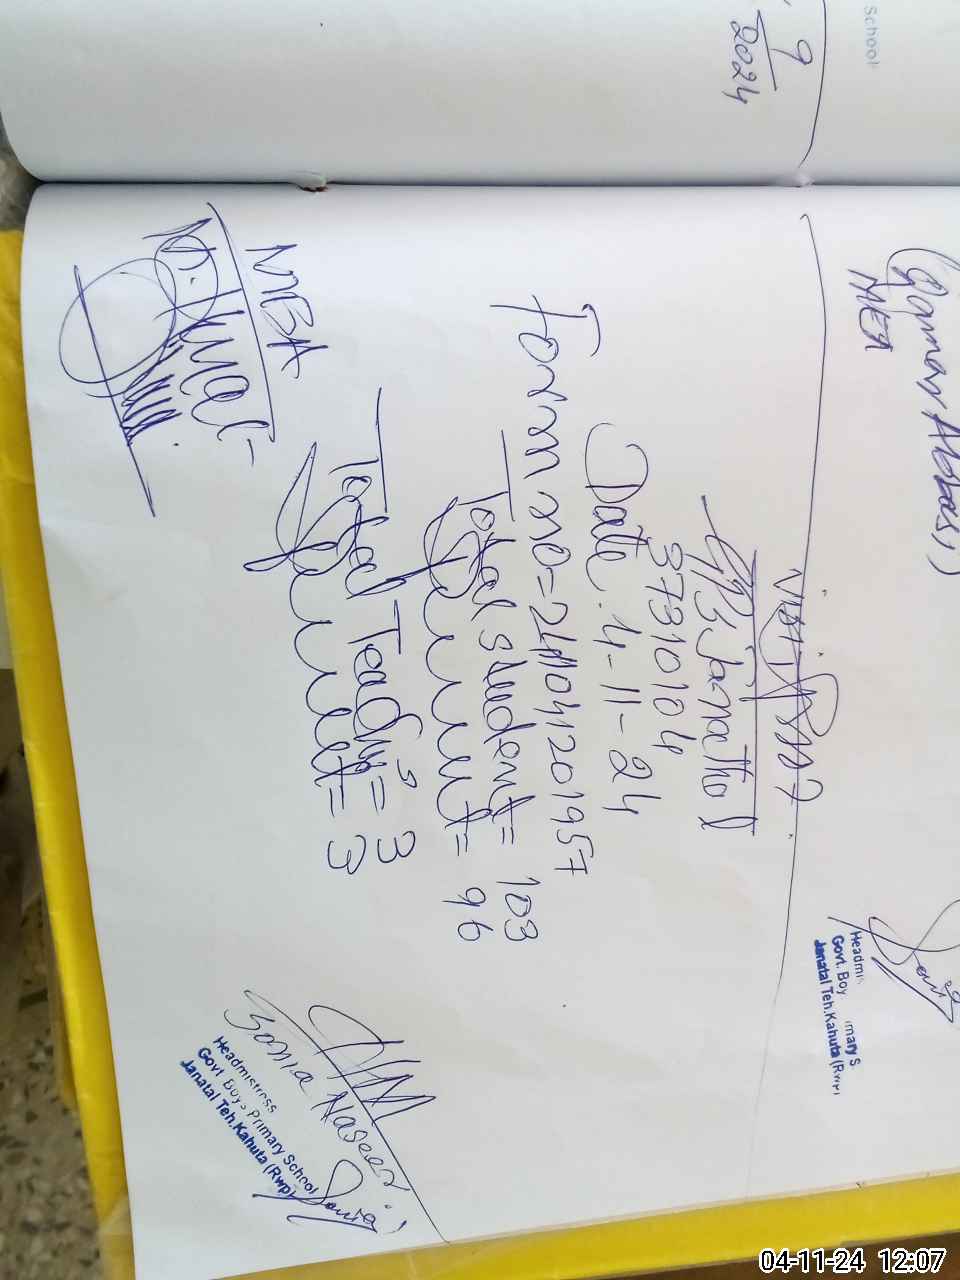 School
9
2024
Qamar Abbas,
MEA
Headmi
Govt. Boy imary S
Janatal Teh.Kahuta (Rwp)
GBPS Janathal
37310104
Date. 4-11-24
Form no = 2411041201957
Total student = 103
Present = 96
Total Teacher's = 3
Present = 3
MEA
HM
Sonia Naseer
Headmistress
Govt Boys Primary School
Janatal Teh.Kahuta (Rwp)
Sonia
04-11-24 12:07